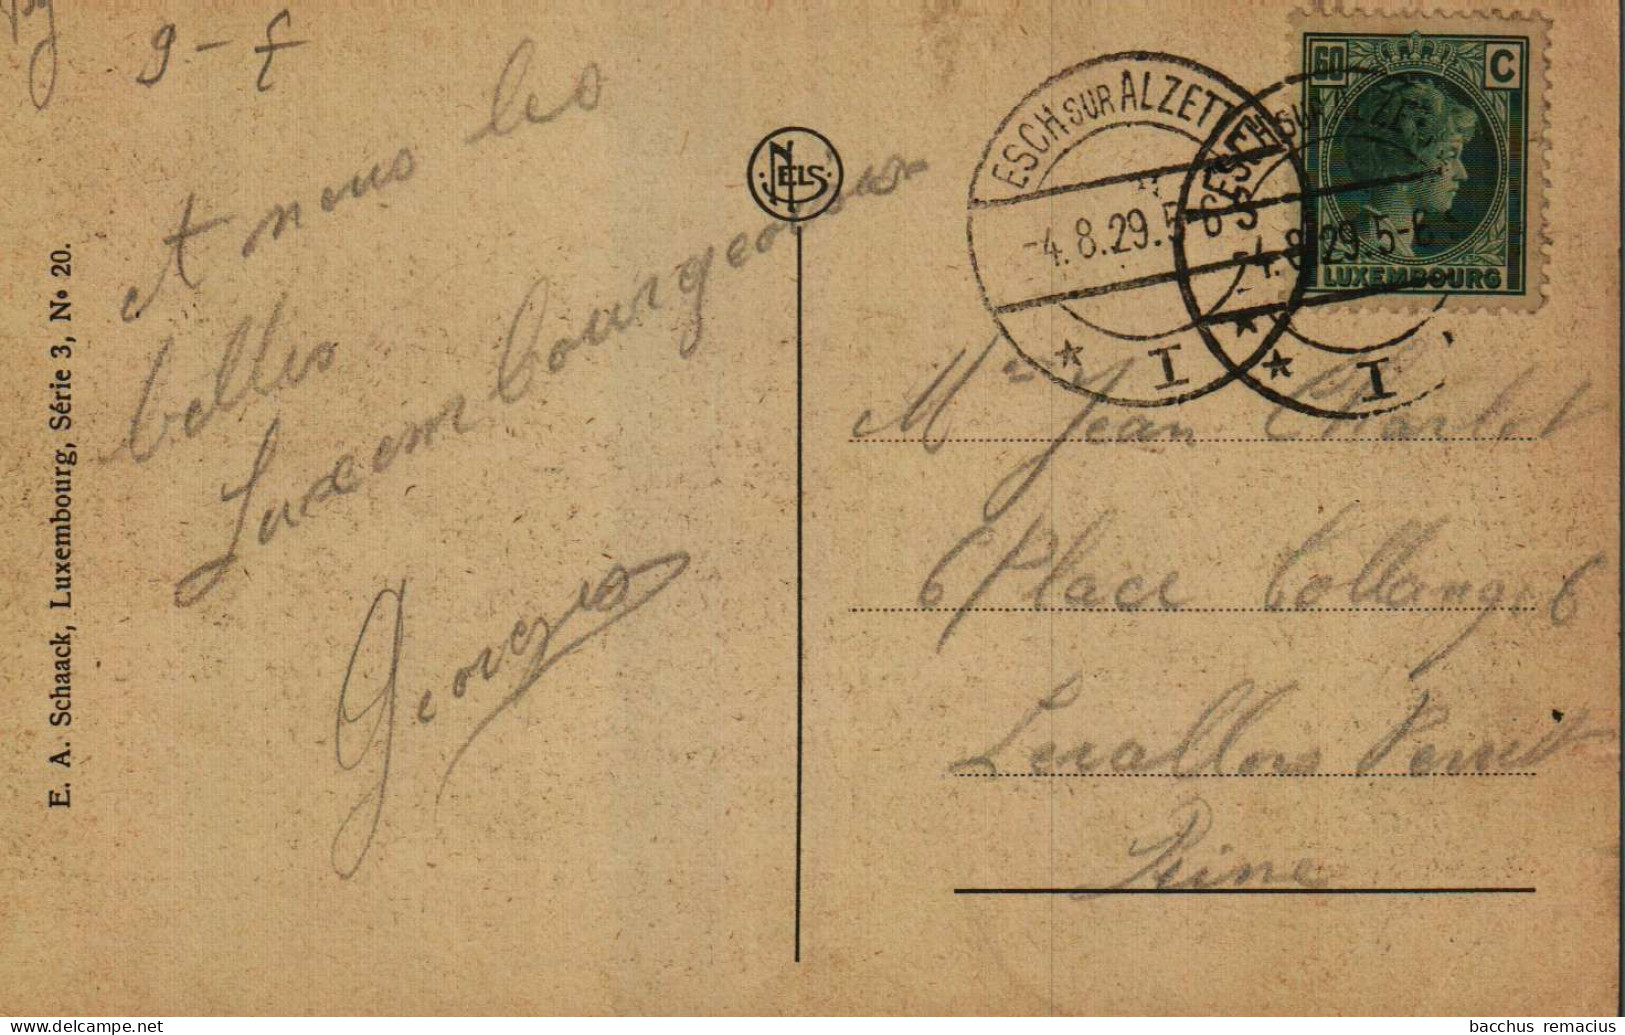 9-f
A nous les
belles
Luxembourgeoises
Georges
E. A. Schaack, Luxembourg, Série 3, No 20.
NELS
ESCH SUR ALZETTE
-4.8.29.5-6 S
I
ESCH SUR ALZE
-4.8.29.5-6
I
60 C
LUXEMBOURG
Mr Jean Charlot
6 Place Collange 6
Levallois Perret
Seine
bacchus remacius